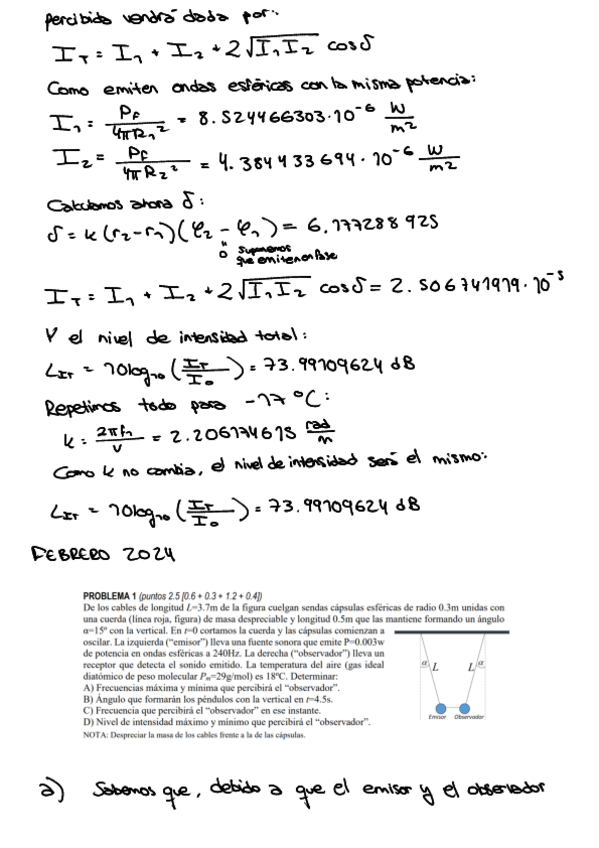 percibida vendrá dada por:
I_T = I_1 + I_2 + 2√(I_1 I_2) cos δ
Como emiten ondas esféricas con la misma potencia:
I_1 = P_f / 4πR_1² = 8.524466303·10⁻⁶ W/m²
I_2 = P_f / 4πR_2² = 4.384433694·10⁻⁶ W/m²
Calculamos ahora δ:
δ = k(r_2-r_1)(φ_2 - φ_1) = 6.177288925
0 suponemos
que emiten en fase
I_T = I_1 + I_2 + 2√(I_1 I_2) cos δ = 2.506741919·10⁻⁵
Y el nivel de intensidad total:
L_IT = 10log_10 (I_T/I_0) = 73.99109624 dB
Repetimos todo para -17 ºC:
k = 2πf_1/v = 2.206174675 rad/m
Como k no cambia, el nivel de intensidad será el mismo:
L_IT = 10log_10 (I_T/I_0) = 73.99109624 dB
FEBRERO 2024
PROBLEMA 1 (puntos 2.5 [0.6 + 0.3 + 1.2 + 0.4])
De los cables de longitud L=3.7m de la figura cuelgan sendas cápsulas esféricas de radio 0.3m unidas con
una cuerda (línea roja, figura) de masa despreciable y longitud 0.5m que las mantiene formando un ángulo
α=15º con la vertical. En t=0 cortamos la cuerda y las cápsulas comienzan a
oscilar. La izquierda ("emisor") lleva una fuente sonora que emite P=0.003w
de potencia en ondas esféricas a 240Hz. La derecha ("observador") lleva un
receptor que detecta el sonido emitido. La temperatura del aire (gas ideal
diatómico de peso molecular P_m=29g/mol) es 18ºC. Determinar:
A) Frecuencias máxima y mínima que percibirá el "observador".
B) Ángulo que formarán los péndulos con la vertical en t=4.5s.
C) Frecuencia que percibirá el "observador" en ese instante.
D) Nivel de intensidad máximo y mínimo que percibirá el "observador".
NOTA: Despreciar la masa de los cables frente a la de las cápsulas.
α L L α
Emisor Observador
a) Sabemos que, debido a que el emisor y el observador